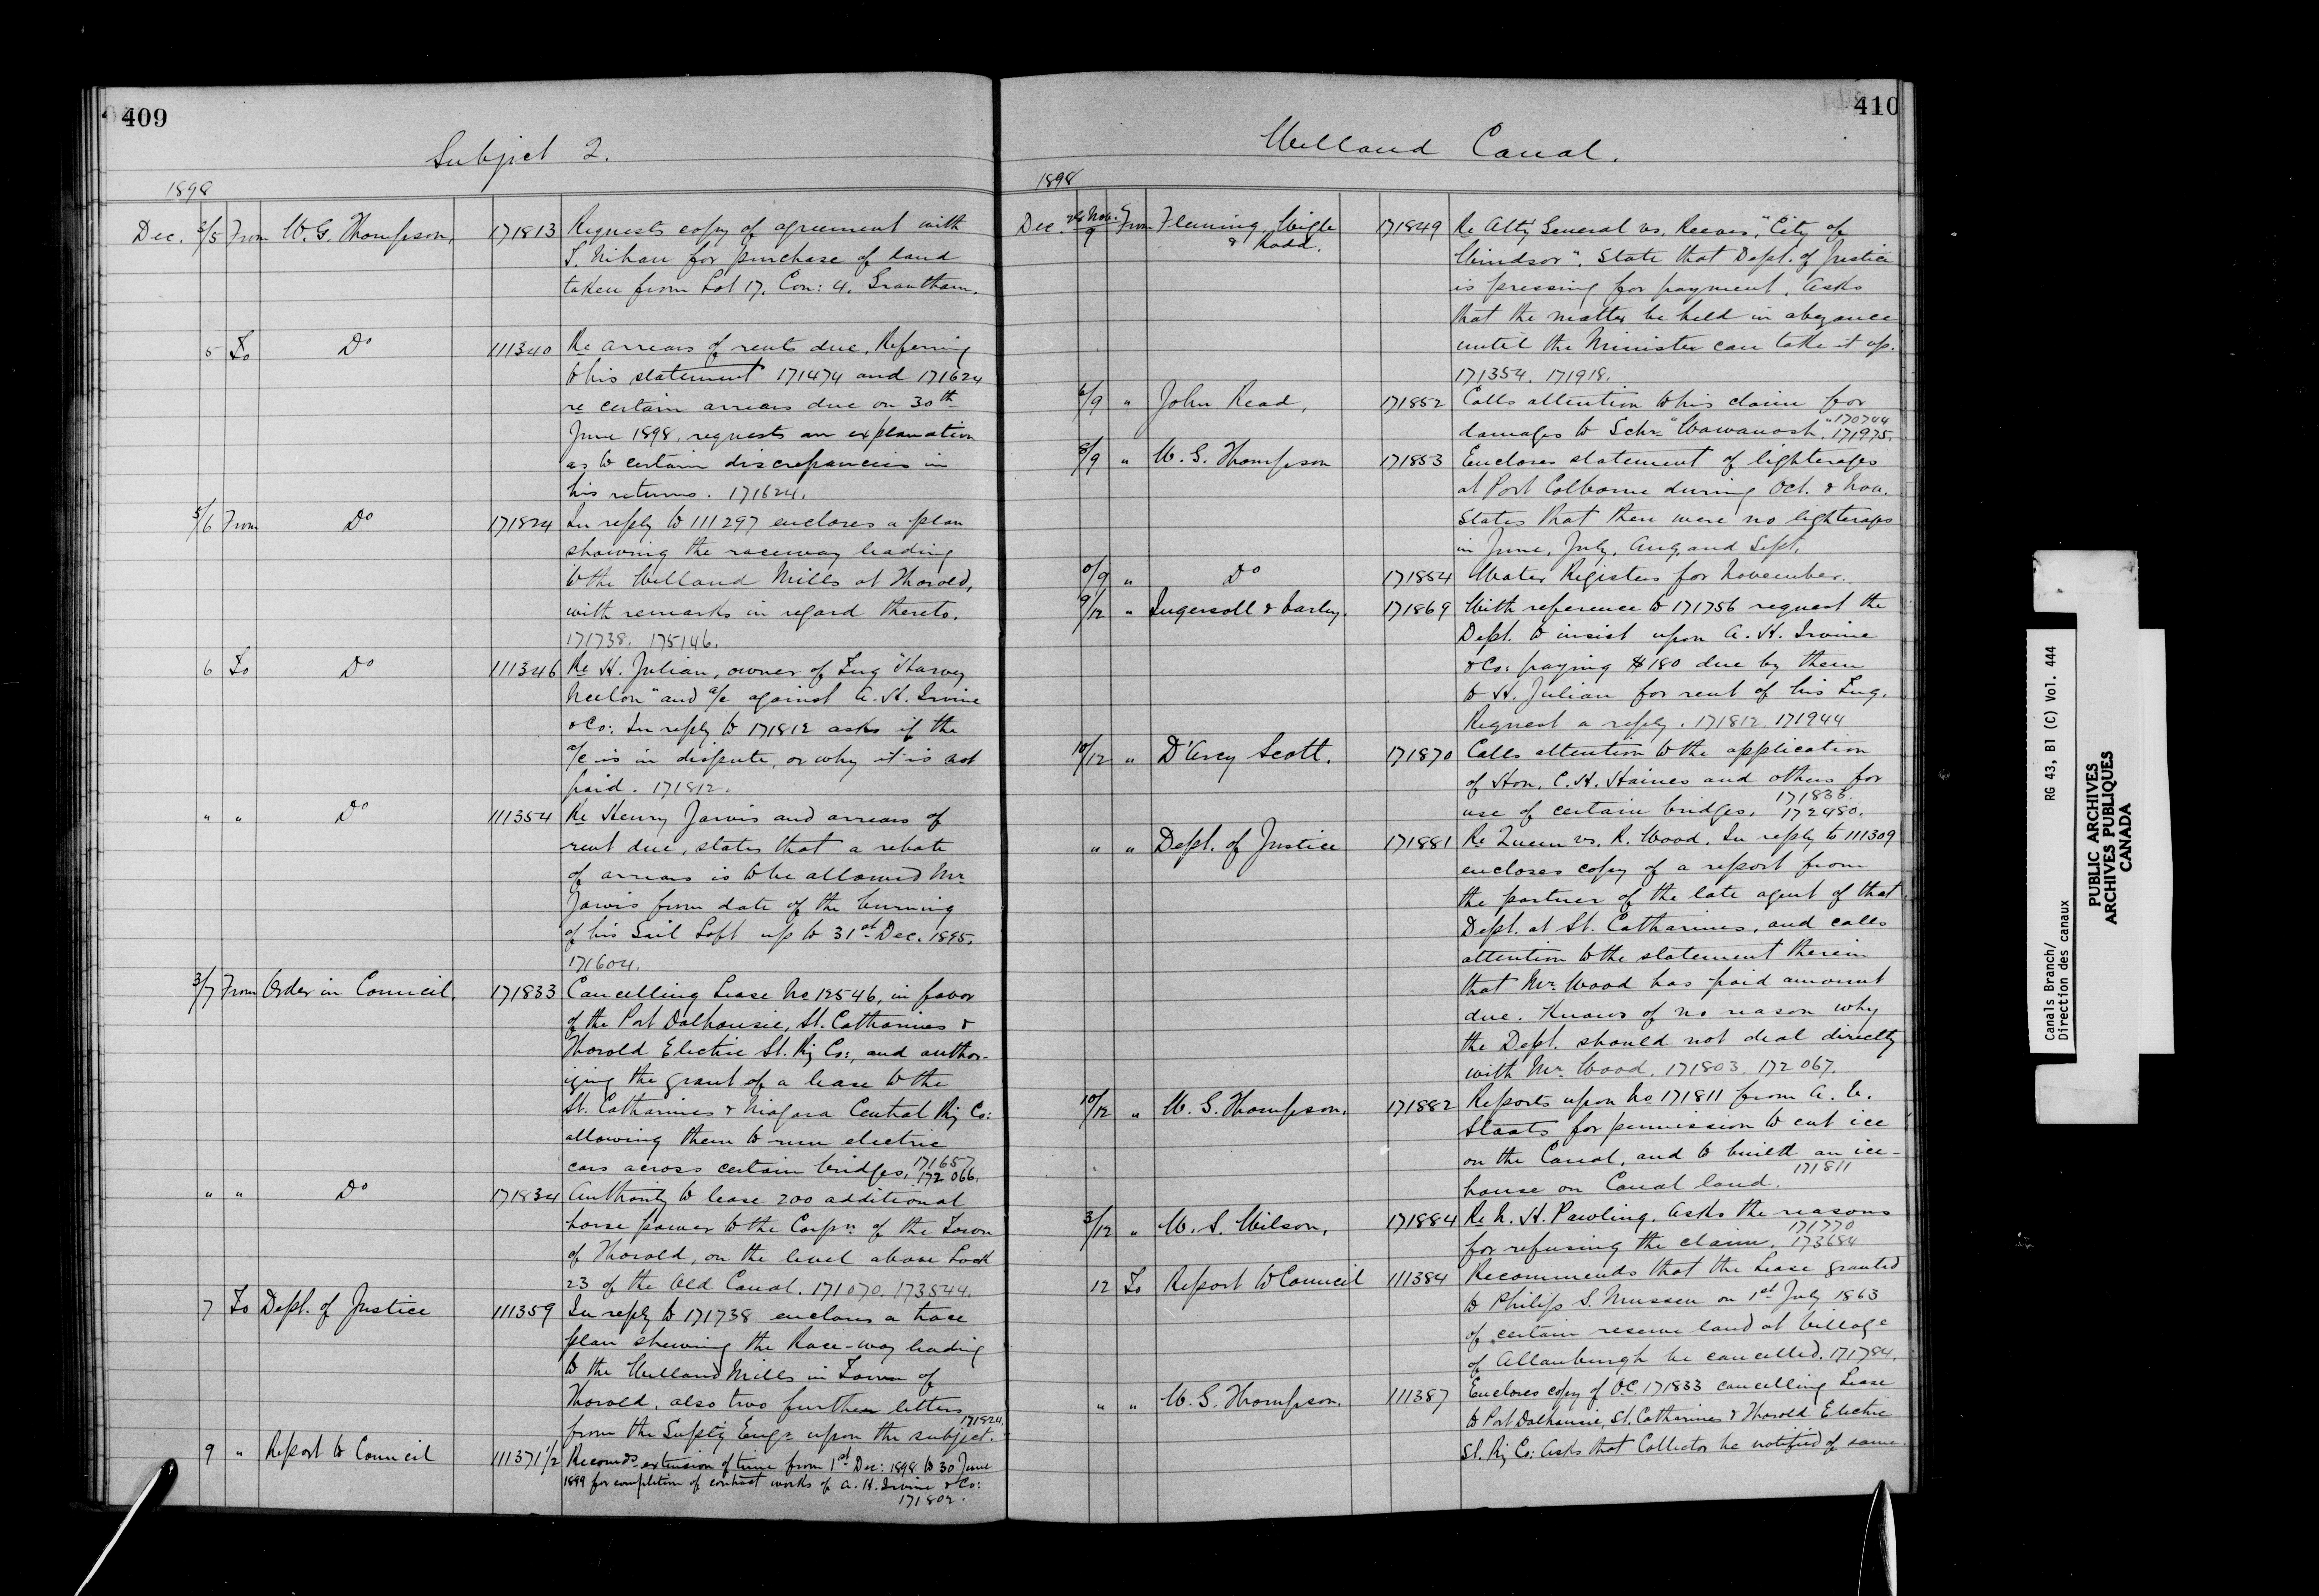 409
Subject 2.
1898
Dec. 3/5 From W. G. Thompson, 171813 Requests copy of agreement with
S. Nihan for purchase of land
taken from Lot 17, Con: 4, Grantham.
5 To Do 111340 Re arrears of rents due, Referring
to his statement 171474 and 171624
re certain arrears due on 30th
June 1898, requests an explanation
as to certain discrepancies in
his returns. 171624.
5/6 From Do 171824 In reply to 111297 encloses a plan
showing the raceway leading
to the Welland Mills at Thorold,
with remarks in regard thereto.
171738. 175146.
6 To Do 111346 Re H. Julian, owner of Tug "Harvey
Neelon" and a/c against A. H. Irvine
& Co: In reply to 171812 asks if the
a/c is in dispute, or why it is not
paid. 171812.
" " Do 111354 Re Henry Jarvis and arrears of
rent due, states that a rebate
of arrears is to be allowed Mr.
Jarvis from date of the burning
of his Sail Loft up to 31st Dec. 1895.
171604.
3/7 From Order in Council. 171833 Cancelling Lease No 12546, in favor
of the Port Dalhousie, St. Catharines &
Thorold Electric St. Ry Co:, and author-
izing the grant of a lease to the
St. Catharines & Niagara Central Ry Co:
allowing them to run electric
cars across certain bridges. 171657
172066.
" " Do 171834 Authority to lease 200 additional
horse power to the Corpn. of the Town
of Thorold, on the level above Lock
23 of the Old Canal. 171070. 173544.
7 To Dept. of Justice 111359 In reply to 171738 encloses a trace
plan shewing the Race-way leading
to the Welland Mills in Town of
Thorold, also two further letters
from the Suptg Engr upon the subject. 171824.
9 " Report to Council 111371 1/2 Recomds extension of time from 1st Dec: 1898 to 30 June
1899 for completion of contract works of A. H. Irvine & Co:
171802.
410
Welland Canal.
1898
Dec. 28 Nov./9 From Fleming Wigle
& Rodd. 171849 Re Atty General vs. Reeves, "City of
Windsor". State that Dept. of Justice
is pressing for payment. Asks
that the matter be held in abeyance
until the Minister can take it up.
171354. 171918.
6/9 " John Read, 171852 Calls attention to his claim for
damages to Schr. "Wawanosh". 170744
171975.
8/9 " W. G. Thompson 171853 Encloses statement of lighterages
at Port Colborne during Oct. & Nov.
States that there were no lighterages
in June, July, Aug, and Sept.
0/9 " Do 171854 Water Registers for November.
9/12 " Ingersoll & Varley. 171869 With reference to 171756 request the
Dept. to insist upon A. H. Irvine
& Co: paying $180 due by them
to H. Julian for rent of his Tug.
Request a reply. 171812. 171944
10/12 " D'Arcy Scott. 171870 Calls attention to the application
of Hon. C. H. Haines and others for
use of certain bridges. 171833.
172480.
" " Dept. of Justice 171881 Re Queen vs. R. Wood. In reply to 111309
encloses copy of a report from
the partner of the late agent of that
Dept. at St. Catharines, and calls
attention to the statement therein
that Mr. Wood has paid amount
due. Knows of no reason why
the Dept. should not deal directly
with Mr. Wood. 171803. 172067.
10/12 " W. G. Thompson. 171882 Reports upon No 171811 from A.
Staats for permission to cut ice
on the Canal, and to build an ice-
house on Canal land. 171811
3/12 " W. S. Wilson, 171884 Re N. H. Pawling. Asks the reasons
for refusing the claim. 171770
173684
12 To Report to Council 111384 Recommends that the Lease granted
to Philip S. Mussen on 1st July 1863
of certain reserve land at Village
of Allanburgh be cancelled. 171794.
" " W. G. Thompson. 111387 Encloses copy of O.C. 171833 cancelling Lease
to Port Dalhousie, St. Catharines & Thorold Electric
St. Ry Co: Asks that Collector be notified of same.
Canals Branch/
Direction des canaux
RG 43, B1 (C) Vol. 444
PUBLIC ARCHIVES
ARCHIVES PUBLIQUES
CANADA